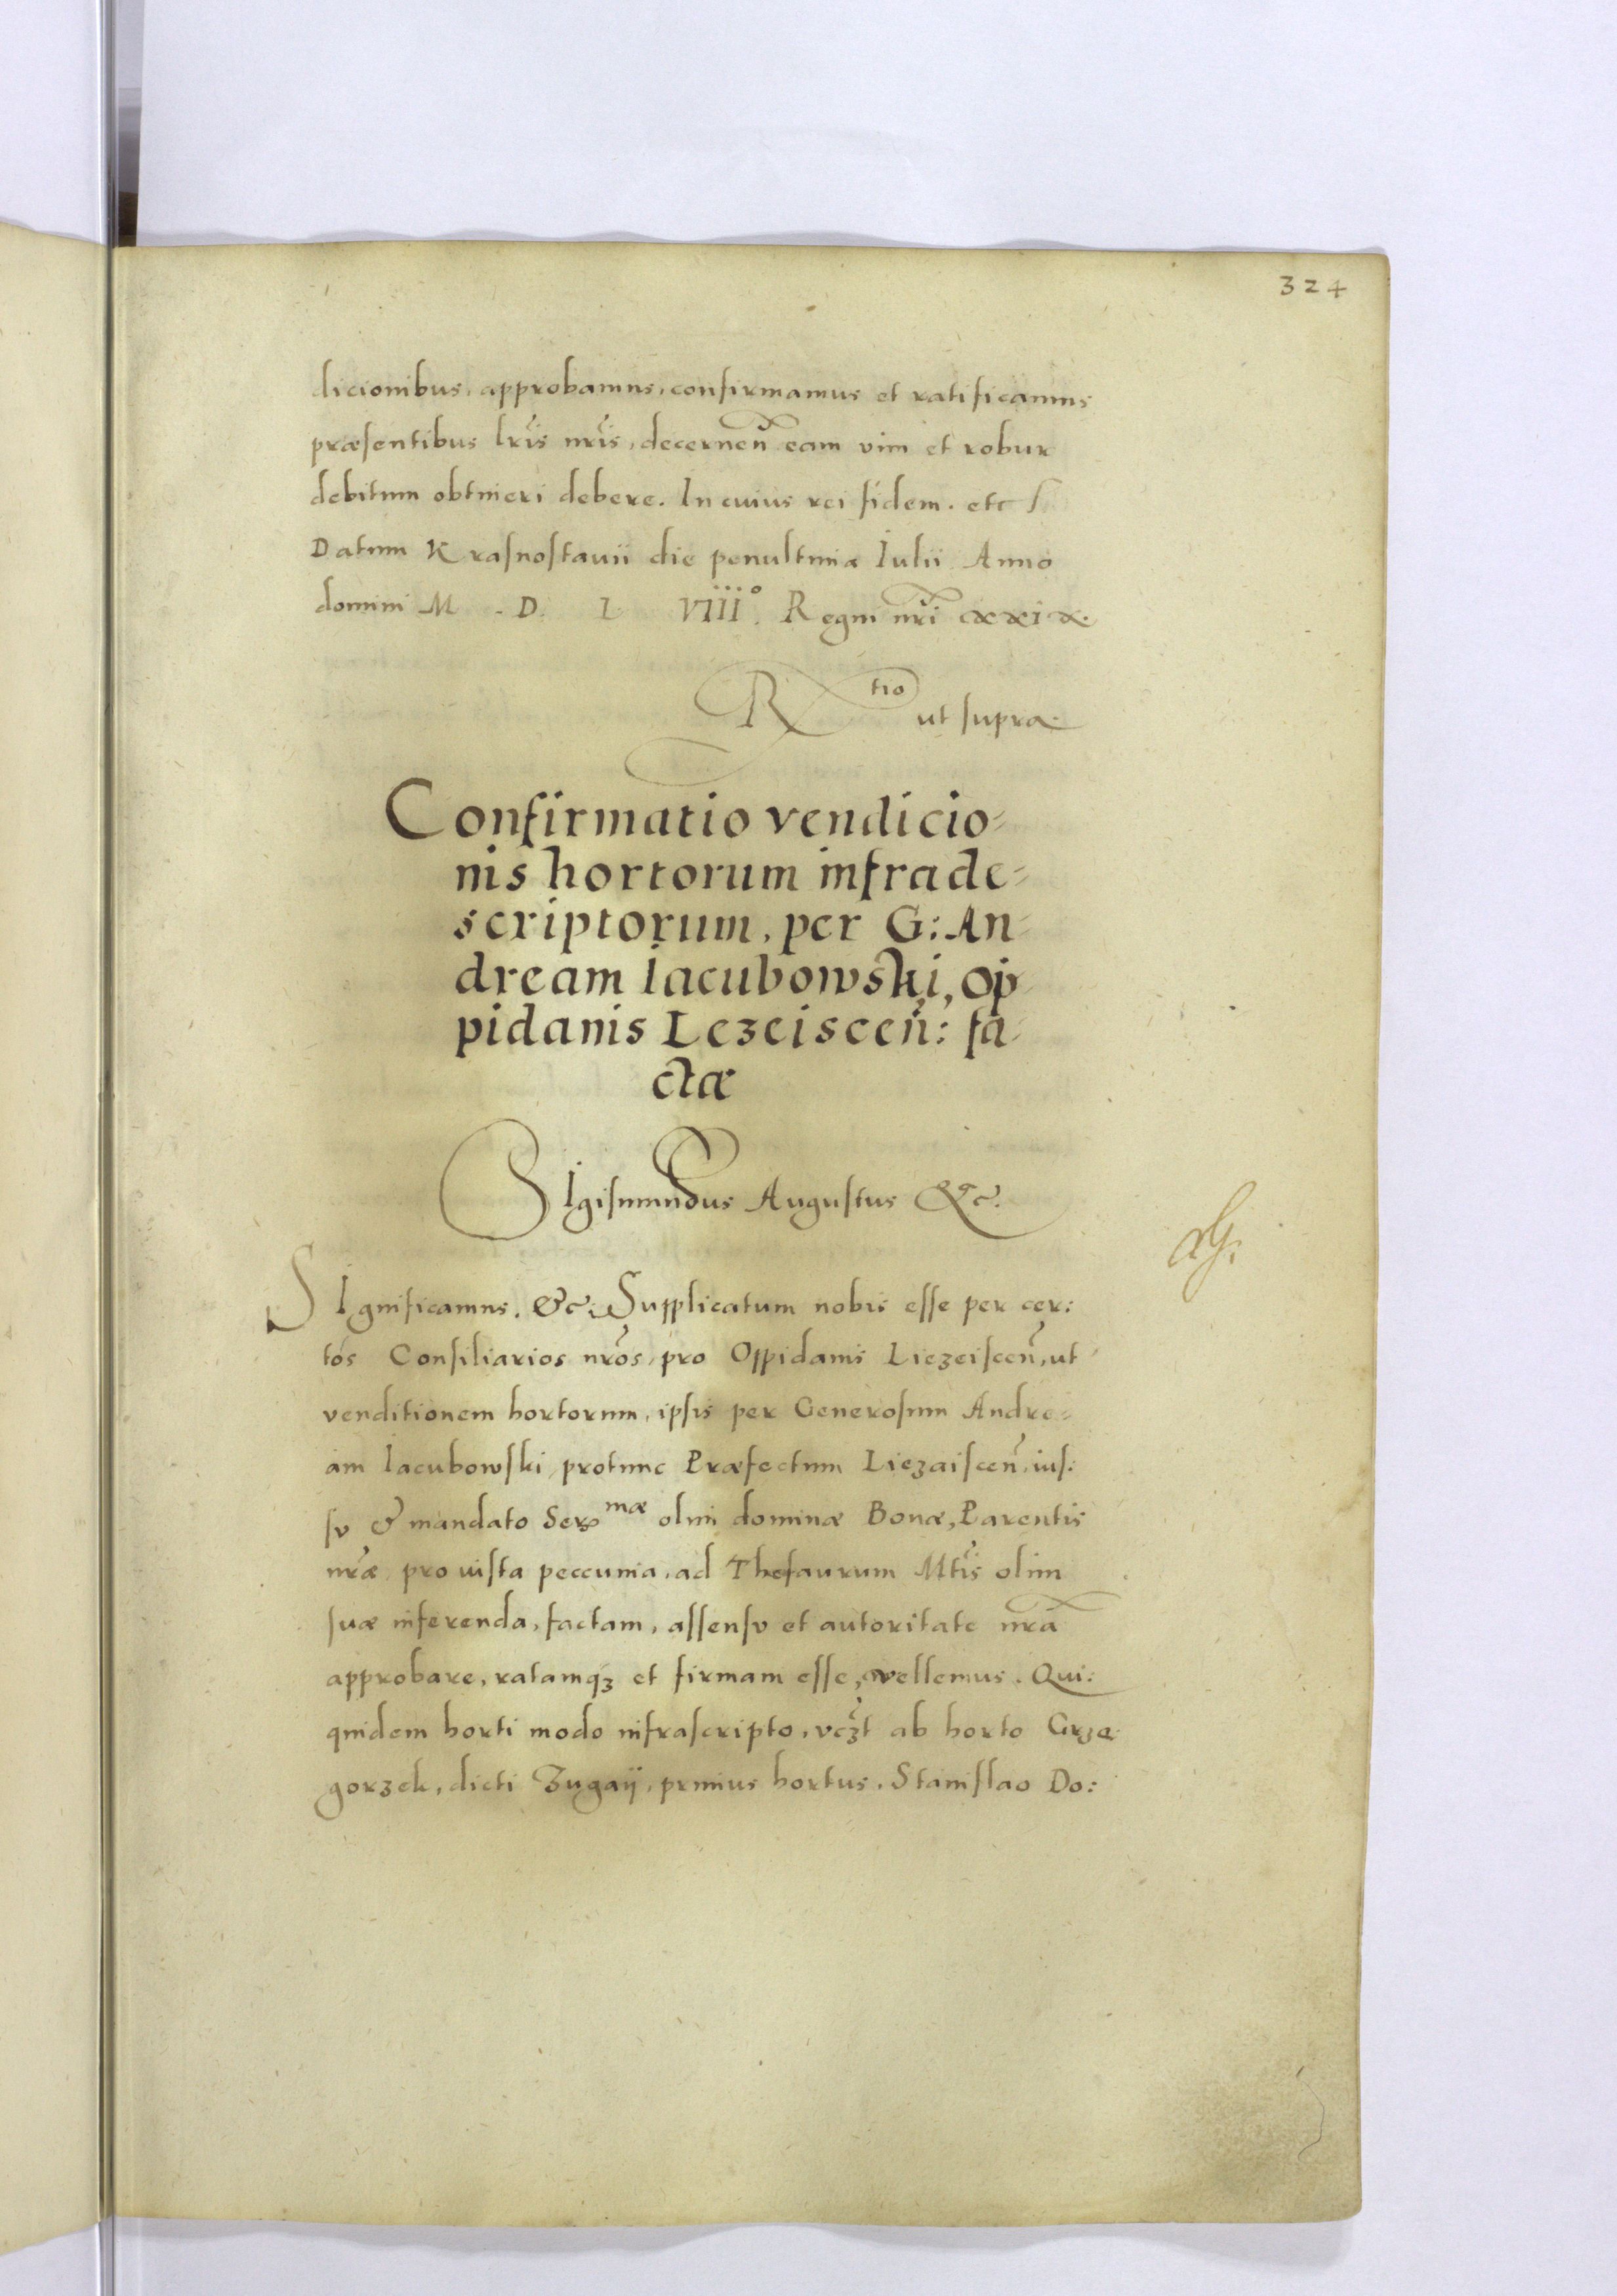 324
dicionibus, approbamus, confirmamus et ratificamus
præsentibus lr̃is nr̃is, decerneñ eam vim et robur
debitum obtineri debere. In cuius rei fidem. etc
Datum Krasnostauii die penultima Iulii Anno
domini M . D. L VIII°. Regni nr̃i xxix.
R tio ut supra.
Confirmatio vendicio-
nis hortorum infrade-
scriptorum, per G: An-
dream Iacubowski, Op-
pidanis Lezeisceñ: fa-
ctæ
SIgismundus Augustus &c.
SIgnificamus. &c. Supplicatum nobis esse per cer:
tos Consiliarios nr̃os, pro Oppidanis Liezeisceñ, ut
venditionem hortorum, ipsis per Generosum Andre-
am Iacubowski, protunc Præfectum Liezaisceñ, ius:
su & mandato Ser mæ olim dominæ Bonæ, Parentis
nr̃æ, pro iusta peccunia, ad Thesaurum Mt̃is olim
suæ inferenda, factam, assensu et autoritate nr̃a
approbare, ratamqꝫ et firmam esse, vellemus. Qui:
quidem horti modo infrascripto, vcꝫt ab horto Grze
gorzek, dicti Zugaÿ, primus hortus, Stanislao Do: